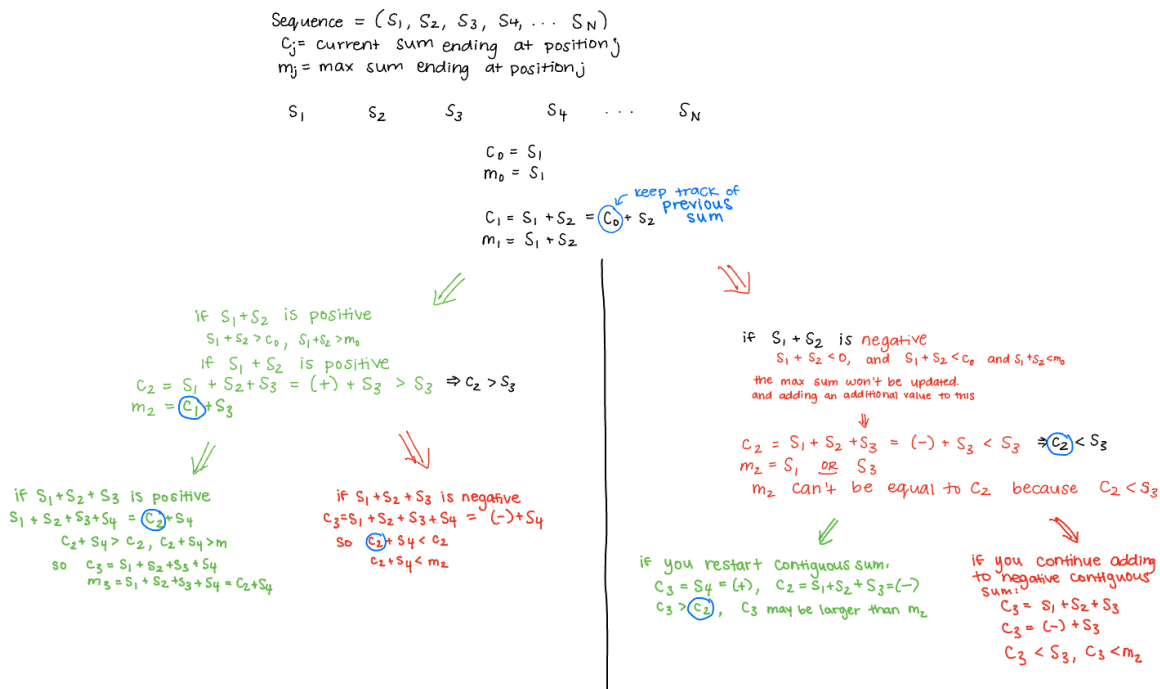 Sequence = (S1, S2, S3, S4, ... SN)
Cj = current sum ending at position j
mj = max sum ending at position j
S1 S2 S3 S4 ... SN
C0 = S1
m0 = S1
keep track of
previous
sum
C1 = S1 + S2 = C0 + S2
m1 = S1 + S2
if S1 + S2 is positive
S1 + S2 > C0, S1 + S2 > m0
if S1 + S2 is positive
C2 = S1 + S2 + S3 = (+) + S3 > S3 ⇒ C2 > S3
m2 = C1 + S3
if S1 + S2 + S3 is positive
S1 + S2 + S3 + S4 = C2 + S4
C2 + S4 > C2, C2 + S4 > m
so C3 = S1 + S2 + S3 + S4
m3 = S1 + S2 + S3 + S4 = C2 + S4
if S1 + S2 + S3 is negative
C3 = S1 + S2 + S3 + S4 = (-) + S4
so C2 + S4 < C2
C2 + S4 < m2
if S1 + S2 is negative
S1 + S2 < 0, and S1 + S2 < C0 and S1 + S2 < m0
the max sum won't be updated.
and adding an additional value to this
C2 = S1 + S2 + S3 = (-) + S3 < S3 ⇒ C2 < S3
m2 = S1 OR S3
m2 can't be equal to C2 because C2 < S3
if you restart contiguous sum:
C3 = S4 = (+), C2 = S1 + S2 + S3 = (-)
C3 > C2, C3 may be larger than m2
if you continue adding
to negative contiguous
sum:
C3 = S1 + S2 + S3
C3 = (-) + S3
C3 < S3, C3 < m2